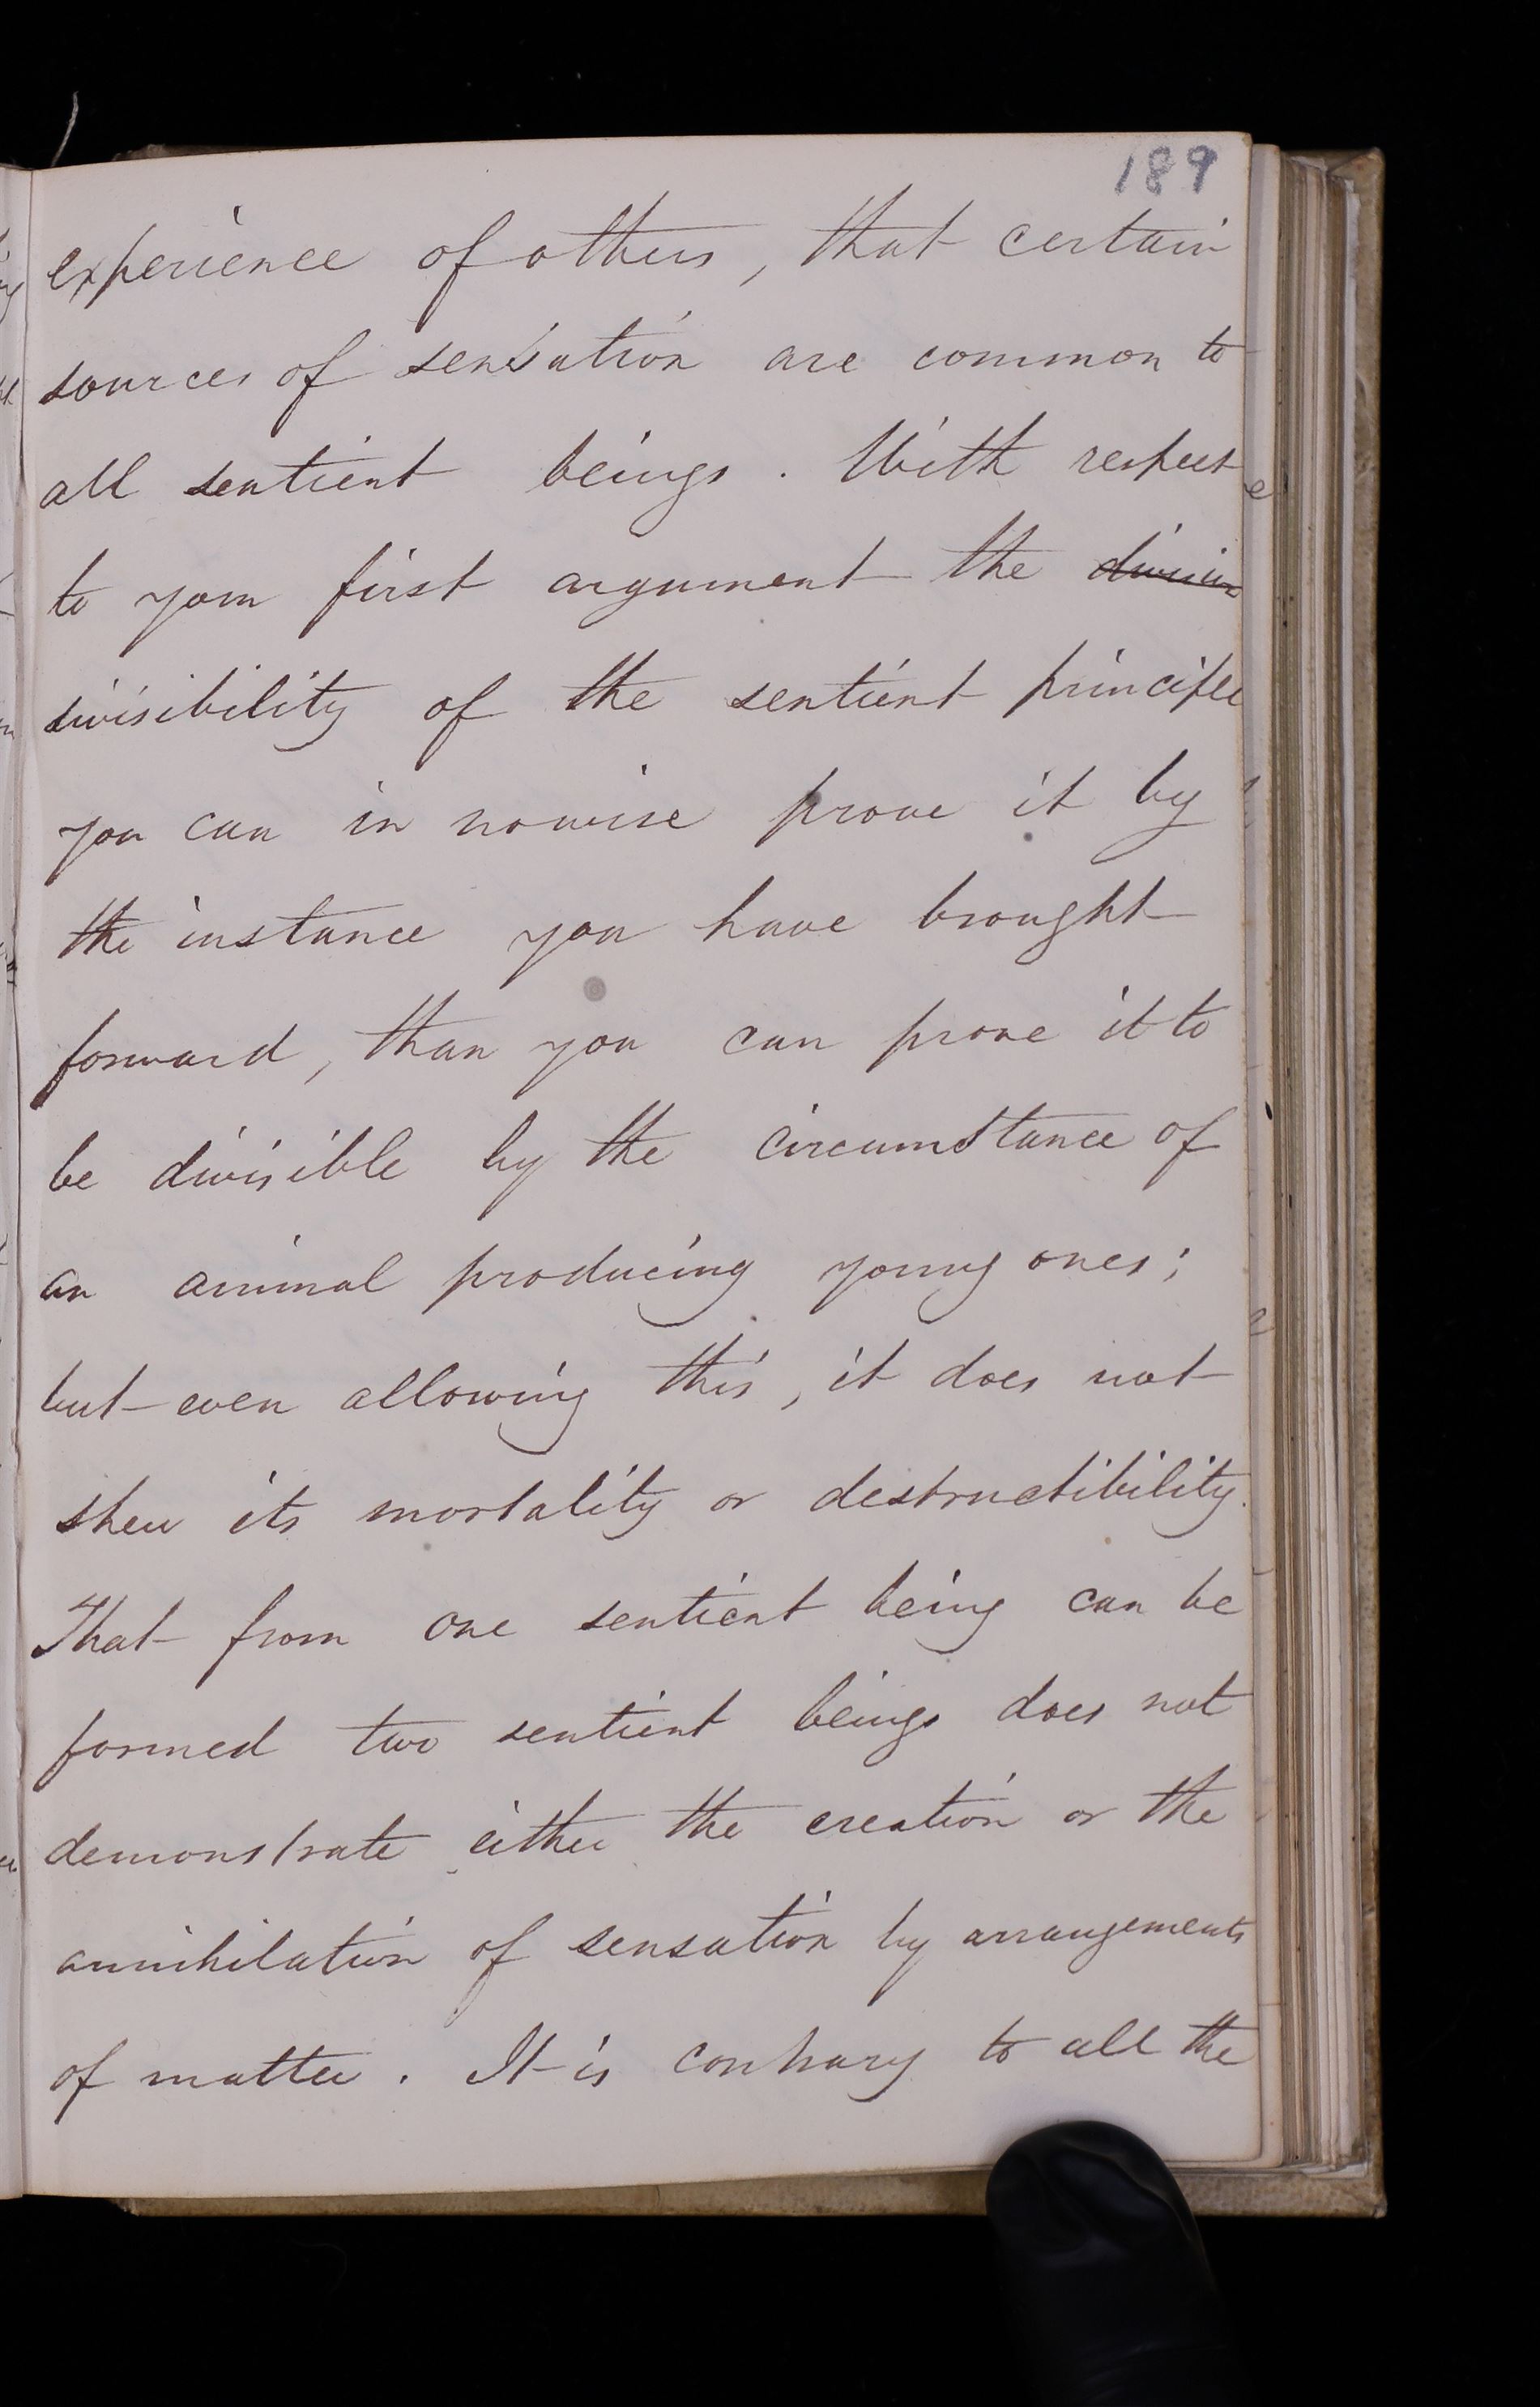 189
experience of others, that certain
sources of sensation are common to
all sentient beings. With respect
to your first argument the division
divisibility of the sentient principle
you can in nowise prove it by
the instance you have brought
forward, than you can prove it to
be divisible by the circumstance of
an animal producing young ones;
but even allowing this, it does not
shew its mortality or destructibility.
That from one sentient being can be
formed two sentient beings does not
demonstrate either the creation or the
annihilation of sensation by arrangements
of matter. It is contrary to all the